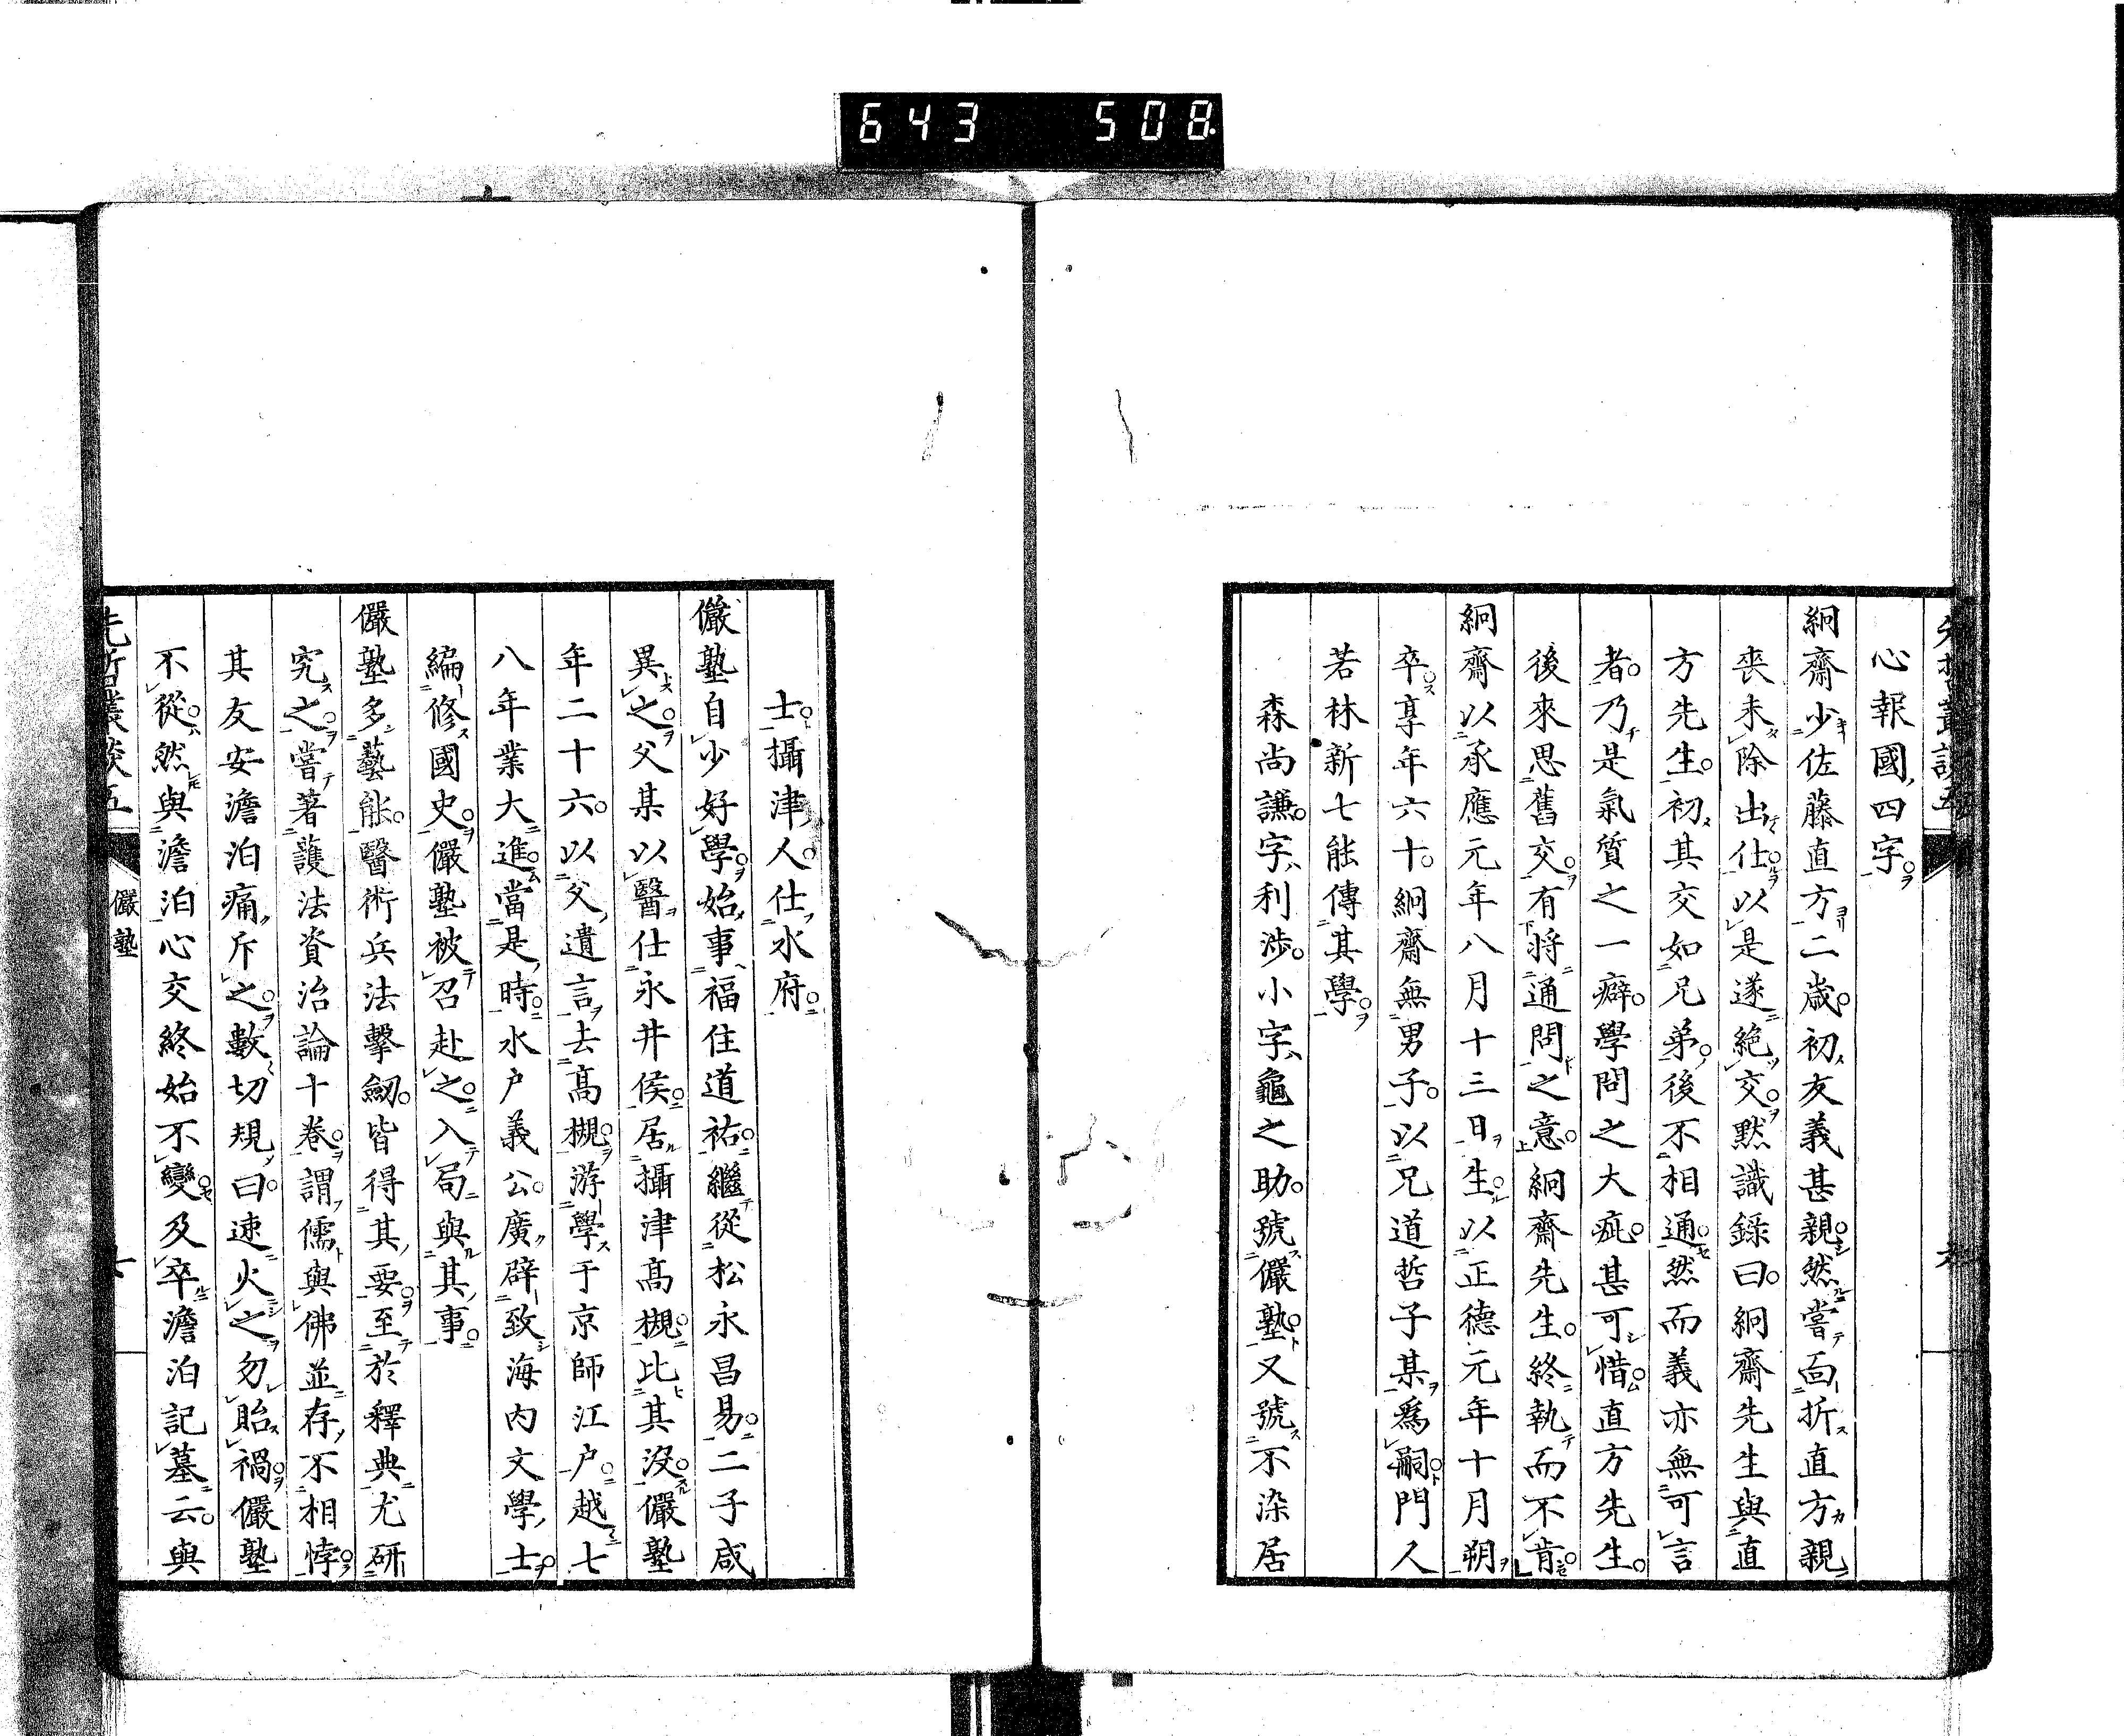 643 508
心報國四字。
絅齋少佐藤直方二歲。初友義甚親。然嘗面折直方親
喪未除出仕。以是遂絕交。默識錄曰。絅齋先生與直
方先生。初其交如兄弟。後不相通。然而義亦無可言
者。乃是氣質之一癖。學問之大疵。甚可惜。直方先生。
後來思舊交。有將通問之意。絅齋先生。終執而不肯。
絅齋以承應元年八月十三日生。以正德元年十月朔
卒。享年六十。絅齋無男子。以兄道哲子某爲嗣。門人
若林新七能傳其學。
森尚謙。字利涉。小字龜之助。號儼塾。又號不染居
士。攝津人。仕水府。
儼塾自少好學。始事福住道祐。繼從松永昌易。二子咸
異之。父某以醫仕永井侯。居攝津高槻。比其沒。儼塾
年二十六。以父遺言去高槻。游學于京師江戶。越七
八年業大進。當是時。水戶義公。廣辟致海內文學士。
編修國史。儼塾被召赴之。入局與其事。
儼塾多藝能。醫術兵法擊劒。皆得其要。至於釋典尤研
究之。嘗著護法資治論十卷。謂儒與佛並存不相悖。
其友安澹泊痛斥之。數切規曰。速火之勿貽禍。儼塾
不從。然與澹泊心交終始不變。及卒澹泊記墓云。與
先哲叢談五
儼塾